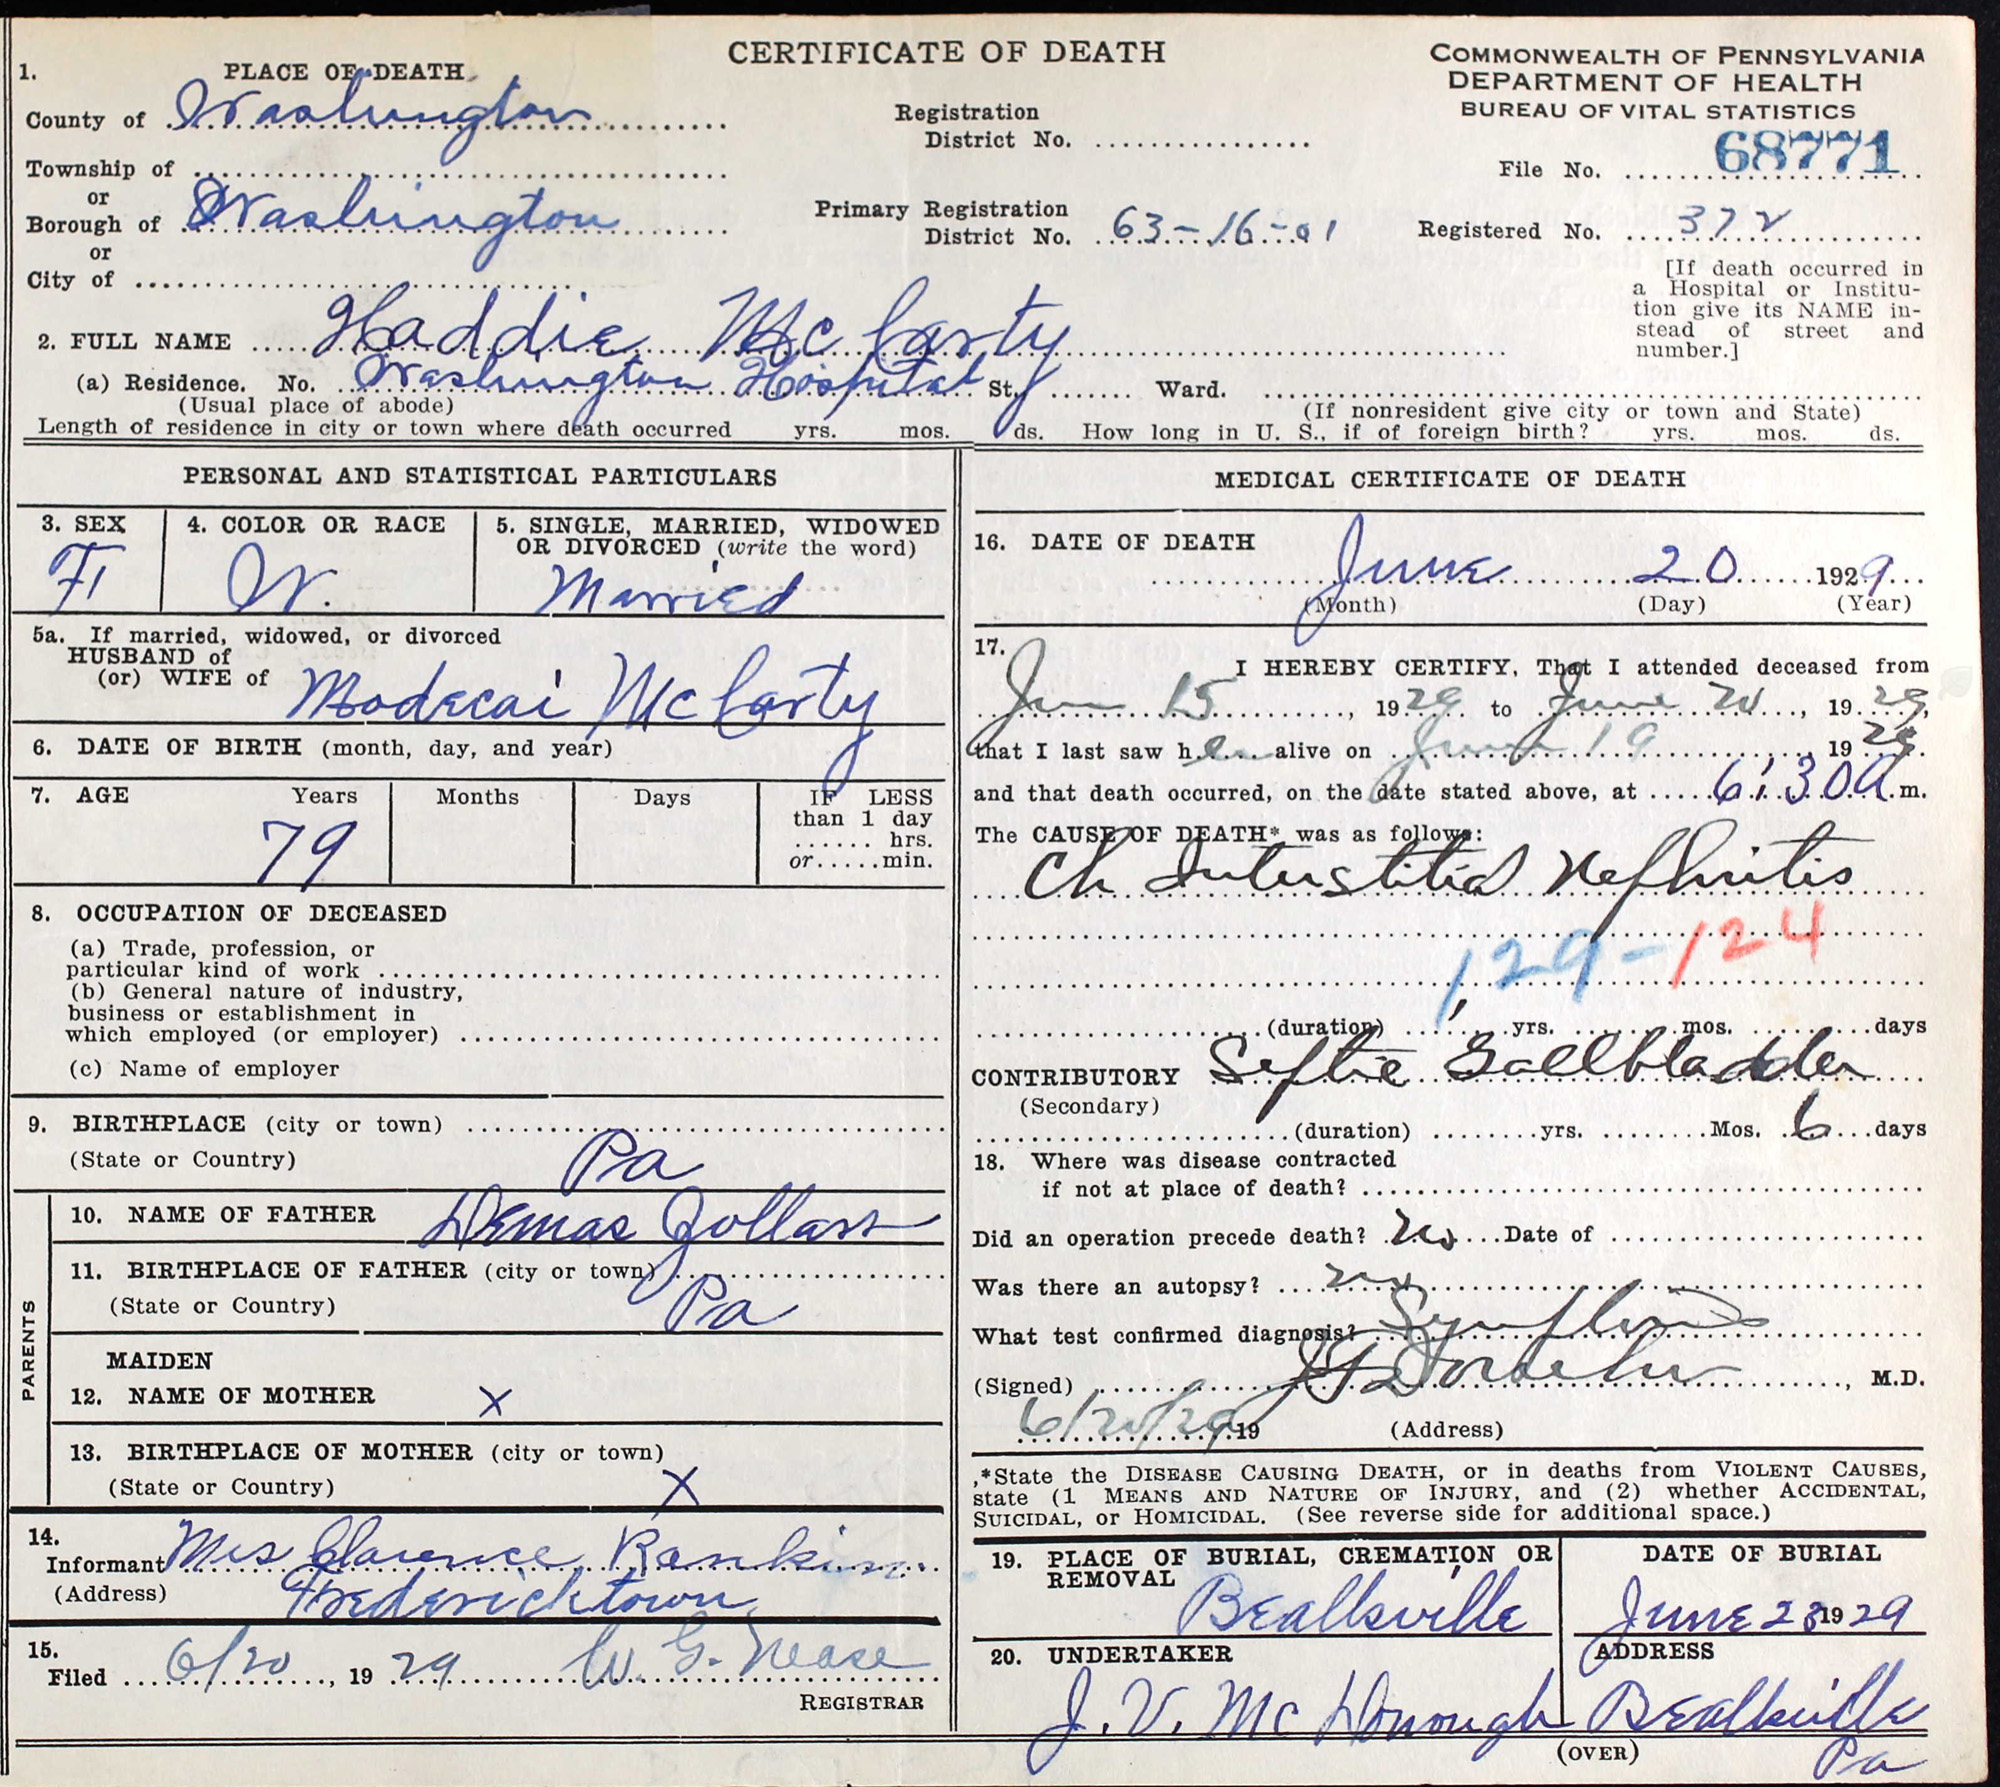 CERTIFICATE OF DEATH
COMMONWEALTH OF PENNSYLVANIA
DEPARTMENT OF HEALTH
BUREAU OF VITAL STATISTICS
1. PLACE OF DEATH
County of Washington
Registration
District No.
File No. 68771
Township of
or
Borough of Washington
Primary Registration
District No. 63-16-01
Registered No. 372
or
City of
[If death occurred in
a Hospital or Institu-
tion give its NAME in-
stead of street and
number.]
2. FULL NAME Haddie McCarty
(a) Residence. No. Washington Hospital St. Ward.
(Usual place of abode)
(If nonresident give city or town and State)
Length of residence in city or town where death occurred yrs. mos. ds. How long in U. S., if of foreign birth? yrs. mos. ds.
PERSONAL AND STATISTICAL PARTICULARS
3. SEX
F
4. COLOR OR RACE
W.
5. SINGLE, MARRIED, WIDOWED
OR DIVORCED (write the word)
Married
5a. If married, widowed, or divorced
HUSBAND of
(or) WIFE of Modecai McCarty
6. DATE OF BIRTH (month, day, and year)
7. AGE Years Months Days IF LESS
than 1 day
hrs.
or min.
79
8. OCCUPATION OF DECEASED
(a) Trade, profession, or
particular kind of work
(b) General nature of industry,
business or establishment in
which employed (or employer)
(c) Name of employer
9. BIRTHPLACE (city or town)
(State or Country) Pa
PARENTS
10. NAME OF FATHER Demas Zollars
11. BIRTHPLACE OF FATHER (city or town)
(State or Country) Pa
MAIDEN
12. NAME OF MOTHER X
13. BIRTHPLACE OF MOTHER (city or town)
(State or Country) X
14.
Informant Mrs Clarence Rankin
(Address) Fredericktown
15.
Filed 6/20, 1929 W. G. Nease
REGISTRAR
MEDICAL CERTIFICATE OF DEATH
16. DATE OF DEATH
June 20 1929
(Month) (Day) (Year)
17.
I HEREBY CERTIFY, That I attended deceased from
Jun 15, 1929 to June 20, 1929,
that I last saw her alive on June 19 1929.
and that death occurred, on the date stated above, at 6:30 a.m.
The CAUSE OF DEATH* was as follows:
Ch Interstitial Nephritis
129-124
(duration) yrs. mos. days
CONTRIBUTORY Septic Gallbladder
(Secondary)
(duration) yrs. Mos. 6 days
18. Where was disease contracted
if not at place of death?
Did an operation precede death? no Date of
Was there an autopsy? no
What test confirmed diagnosis? Symptoms
(Signed) , M.D.
6/20/29 19 (Address)
*State the DISEASE CAUSING DEATH, or in deaths from VIOLENT CAUSES,
state (1 MEANS AND NATURE OF INJURY, and (2) whether ACCIDENTAL,
SUICIDAL, or HOMICIDAL. (See reverse side for additional space.)
19. PLACE OF BURIAL, CREMATION OR
REMOVAL
Beallsville
DATE OF BURIAL
June 23 1929
20. UNDERTAKER
J. V. McDonough
ADDRESS
Beallsville
Pa
(OVER)